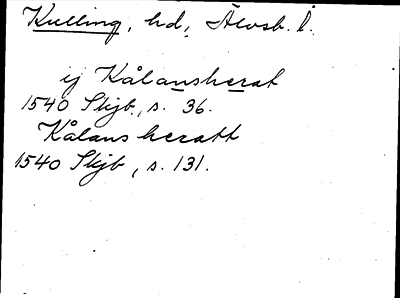 Kulling, hd, Älvsb. l.
ej Kålansherat
1540 Skjb, s. 36.
Kålans heratt
1540 Skjb, s. 131.